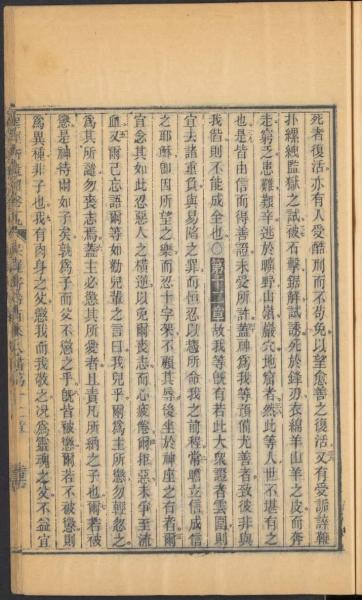 死者復活亦有人受酷刑而不苟免以望愈善之復活又有受詬誶鞭
扑縲絏監獄之試彼石擊鋸解試誘死於鋒刃衣綿羊山羊之皮而奔
走窮乏患難艱辛逃於曠野山嶺巖穴地窟者然此等人世不堪有之
也是皆由信而得善證未受所許蓋神爲我等預備尤善者致彼非與
我偕則不能成全也〇第十二章故我等旣有若此大衆證者雲圍則
宜去諸重負與易陷之罪而恒忍以趨所命我之前程常瞻立信成信
之耶穌卽因所望之樂而忍十字架不顧其辱後坐於神座之右者爾
宜念其如此忍惡人之橫逆以免爾喪志而心疲倦爾拒惡未爭至流
血又爾已忘語爾等如勸兒輩之言曰我兒乎爾爲主所懲勿輕忽之
爲其所譴勿喪志焉蓋主必懲其所愛者且責凡所納之子也爾若被
懲是神待爾如子矣孰爲子而父不懲之乎旣皆被懲爾若不被懲則
爲異種非子也我有肉身之父懲我而我敬之况爲靈魂之父不益宜